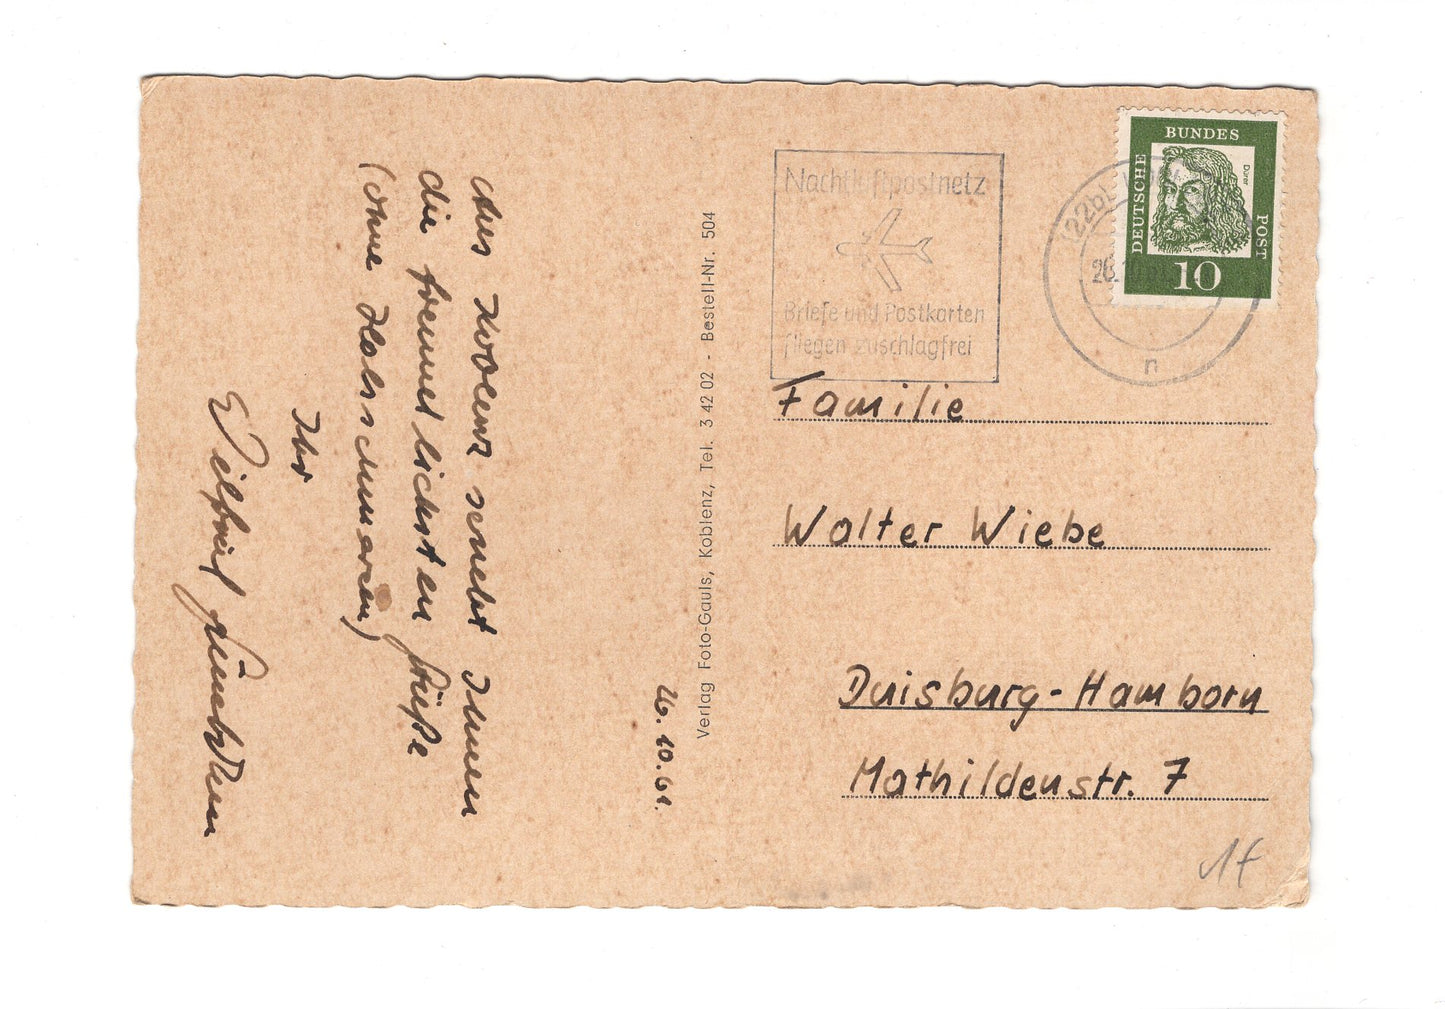 Aus Koblenz sendet Ihnen
die freundlichsten Grüße
(ohne Halsschmerzen)
Ihr
Wilfried
26.10.61.
Verlag Foto-Gauls, Koblenz, Tel. 3 42 02 - Bestell-Nr. 504
Nachtluftpostnetz
Briefe und Postkarten
fliegen zuschlagfrei
(22b)
26.
n
DEUTSCHE
BUNDES
POST
Dürer
10
Familie
Walter Wiebe
Duisburg-Hamborn
Mathildenstr. 7